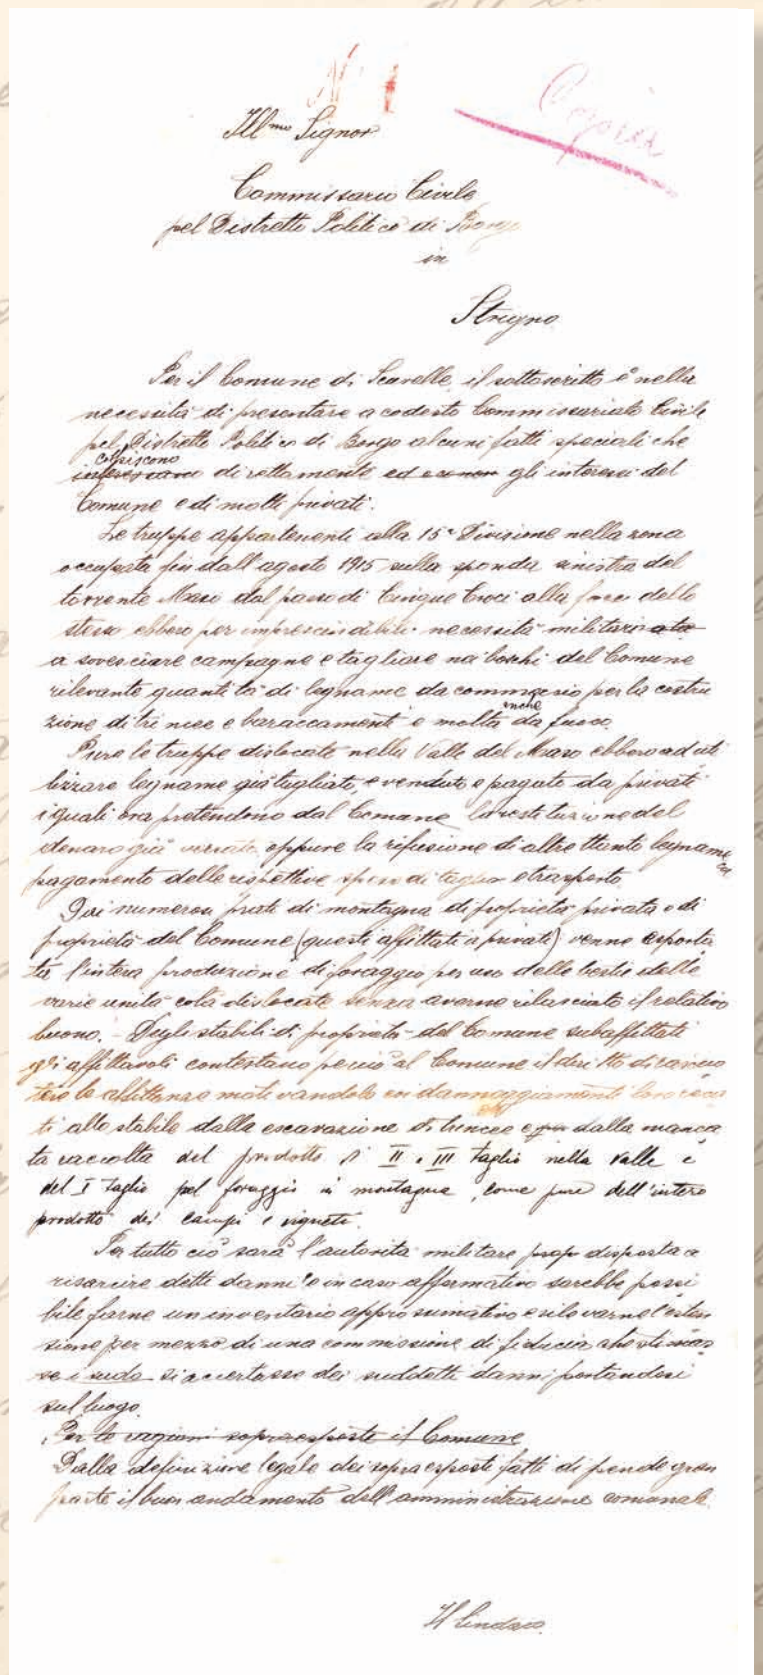 N. 1
Copia
Ill.mo Signor
Commissario Civile
pel Distretto Politico di Borgo
in
Strigno
Per il Comune di Scurelle, il sottoscritto è nella
necessità di presentare a codesto Commissariato Civile
pel Distretto Politico di Borgo alcuni fatti speciali che
colpiscono
interessano direttamente ed gli interessi del
Comune e di molti privati.
Le truppe appartenenti alla 15ª Divisione nella zona
occupata fin dall'agosto 1915 sulla sponda sinistra del
torrente Maso dal paese di Cinque Croci alla foce dello
stesso ebbero per imprescindibili necessità militari
a sovesciare campagne e tagliare nei boschi del Comune
rilevante quantità di legname da commercio per la costru
zione di trincee e baraccamenti e molta da fuoco.
anche
Pure le truppe dislocate nella Valle del Maso ebbero ad uti
lizzare legname già tagliato, e venduto e pagato da privati
i quali ora pretendono dal Comune la restituzione del
denaro già versato oppure la rifusione di altrettanto legname
col
pagamento delle rispettive spese di taglio e trasporto.
Dai numerosi prati di montagna di proprietà privata e di
proprietà del Comune (questi affittati a privati) venne esporta
ta l'intera produzione di foraggio per uso delle bestie delle
varie unità colà dislocate senza averne rilasciato il relativo
buono. - Degli stabili di proprietà del Comune subaffittati
gli affittavoli contestano perciò al Comune il diritto di riscuo
tere le affittanze motivandolo coi danneggiamenti loro reca
ti allo stabile dalla escavazione di trincee e dalla manca
ta raccolta del prodotto di II e III taglio nella valle e
del I taglio pel foraggio in montagna, come pure dell'intero
prodotto dei campi e vigneti.
Per tutto ciò sarà l'autorità militare disposta a
risarcire detti danni e in caso affermativo sarebbe possi
bile farne un inventario approssimativo e rilevarne l'esten
sione per mezzo di una commissione di fiducia che
si accertasse dei suddetti danni portandosi
sul luogo.
Per le ragioni sopraesposte il Comune
Dalla definizione legale dei sopraesposti fatti dipende gran
parte il buon andamento dell'amministrazione comunale.
Il Sindaco.